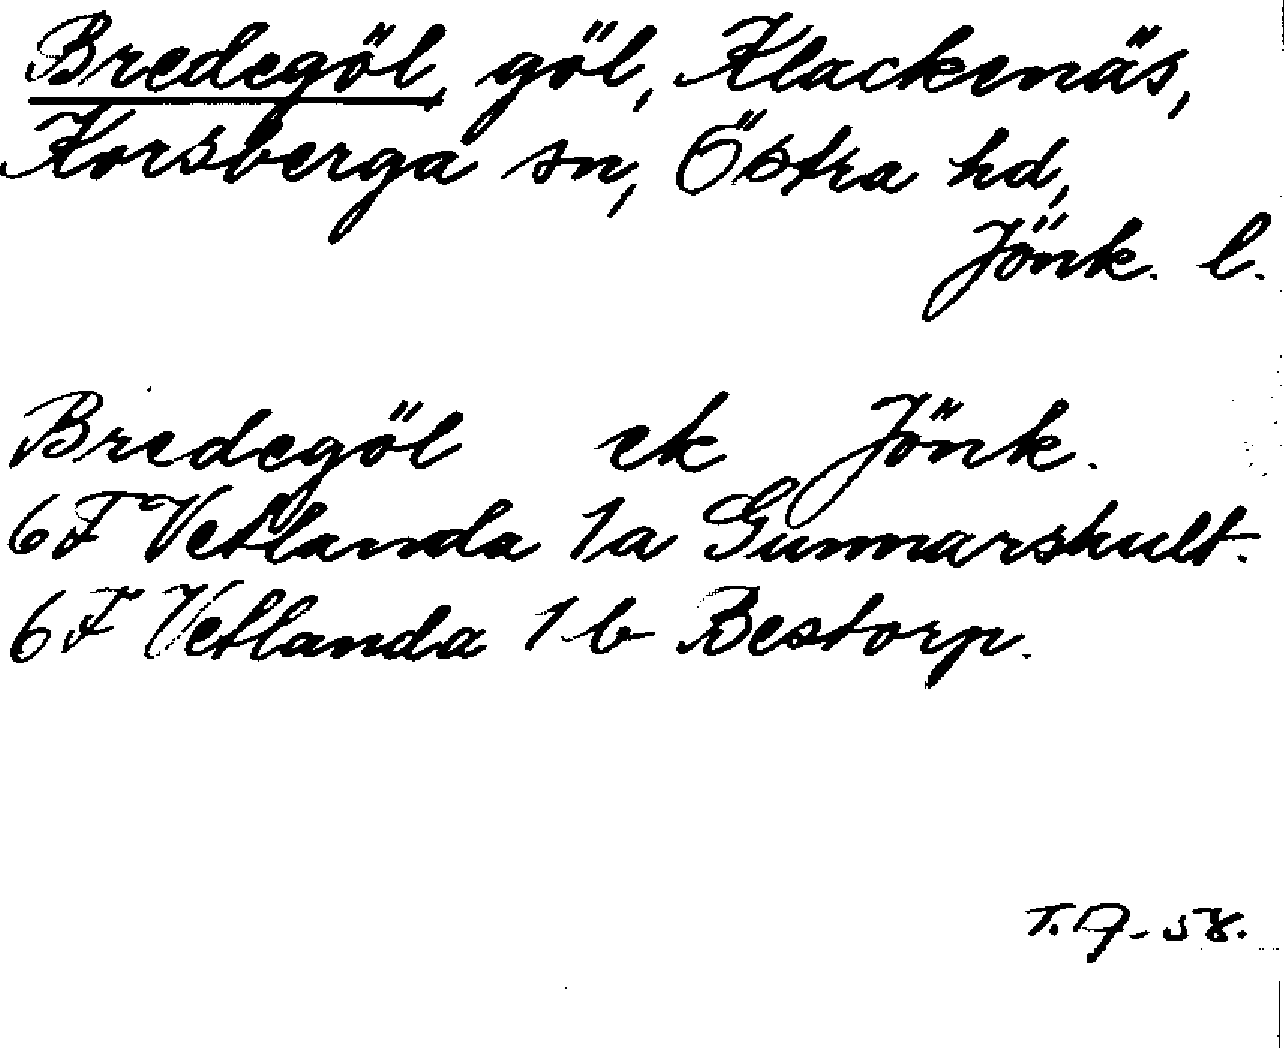 Bredegöl, göl, Klackenäs,
Korsberga sn, Östra hd,
Jönk. l.
Bredegöl ek Jönk.
6F Vetlanda 1a Gunnarshult.
6F Vetlanda 1b Bestorp.
58.